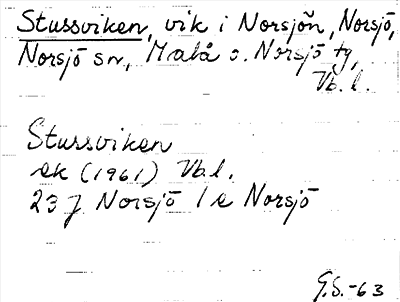 Stussviken, vik i Norsjön, Norsjö,
Norsjö sn, Malå o. Norsjö tg,
Vb. l.
Stussviken
ek (1961) Vb.l.
23 J Norsjö 1 e Norsjö
G.S.-63